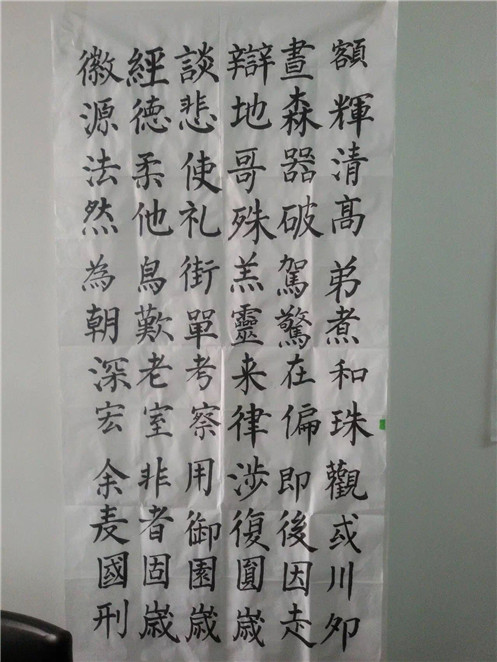 額輝清高弟煮和珠觀或川卯
晝森器破駕驚在偏即後因走
辯地哥殊羔靈来律涉復圓歳
談悲使礼街單考察用御園歳
經德柔他鳥歎老室非者固歳
徽源法然為朝深宏余麦國刑